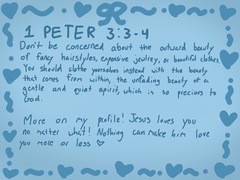 1 PETER 3:3-4
Don't be concerned about the outward beauty
of fancy hairstyles, expensive jewlrey, or beautiful clothes.
You should clothe yourselves instead with the beauty
that comes from within, the unfading beauty of a
gentle and quiet spirit, which is so precious to
God.
More on my profile! Jesus loves you
no matter what! Nothing can make him love
you more or less